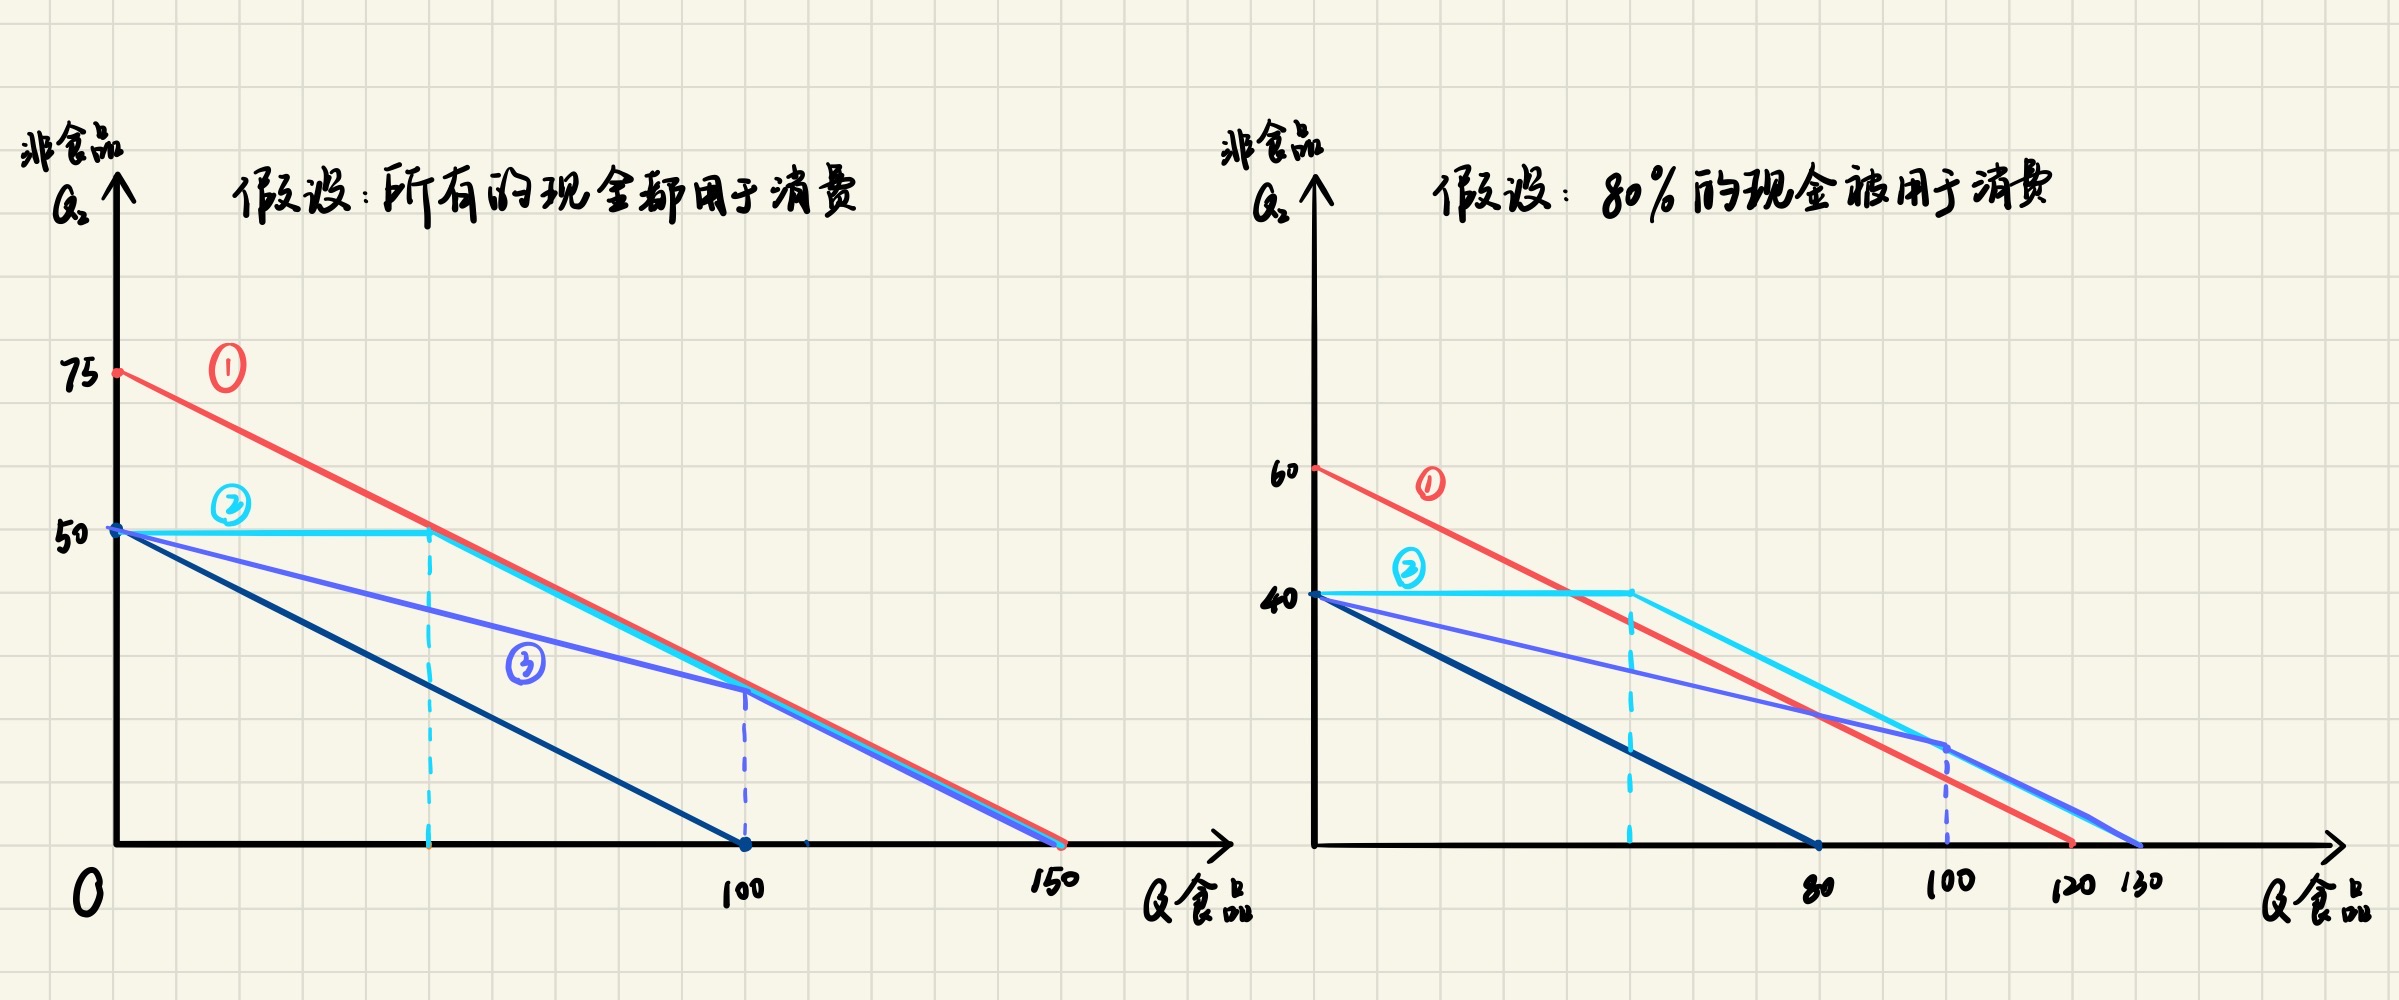 非食品
Q₂
假设:所有的现金都用于消费
75
①
②
50
③
O
100
150
Q食品
非食品
Q₂
假设: 80%的现金被用于消费
60
①
②
40
80
100
120
130
Q食品